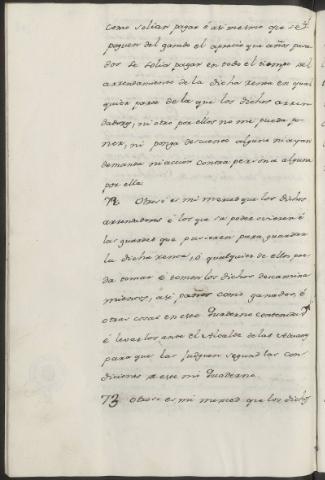 como solian pagar é asi mesmo que se
paguen del ganado el aprecio que años pasa
dos se solia pagar en todo el tiempo del
arrendamiento de la dicha renta en qual
quier parte de la que los dichos arren
dadores, ni otro por ellos no me pueda po
ner, ni ponga descuento alguno ni ayan
demanda ni accion contra persona alguna
por ella
72 Otrosi es mi merced que los dichos
arrendadores é los que su poder ovieren é
las guardas que pusieren para guardar
la dicha renta, ó qualquier de ellos, pue
da tomar é tomen los dichos descamina
mientos, asi paños como ganados, é
otras cosas en este Quaderno contenidas
é levarlos ante el Alcalde de las Aduanas
para que las juzguen segun las con
diciones de este mi Quaderno.
73 Otrosi es mi merced que los dichos